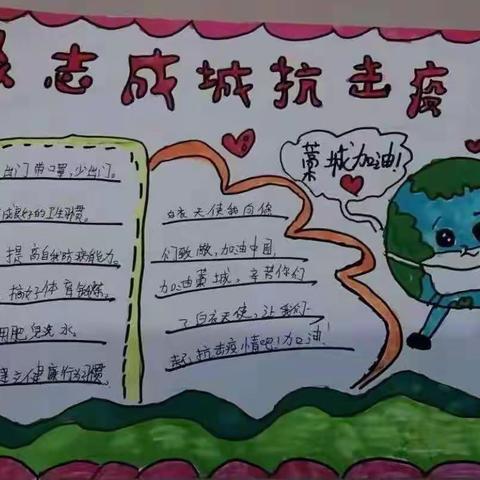 志成城抗击疫
藁城加油!
出门带口罩,少出门。
成良好的卫生习惯。
提高自我防病能力。
搞好体育锻炼。
用肥皂洗水。
建立健康行为习惯
白衣天使我向你
们致敬,加油中国,
加油藁城,辛苦你们
了白衣天使,让我们一
起抗击疫情吧!加油!